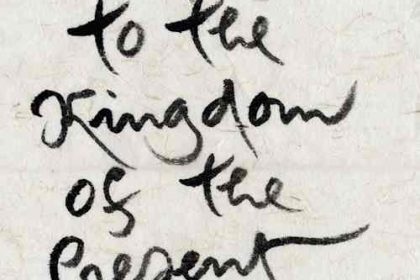 to the
Kingdom
of the
Present